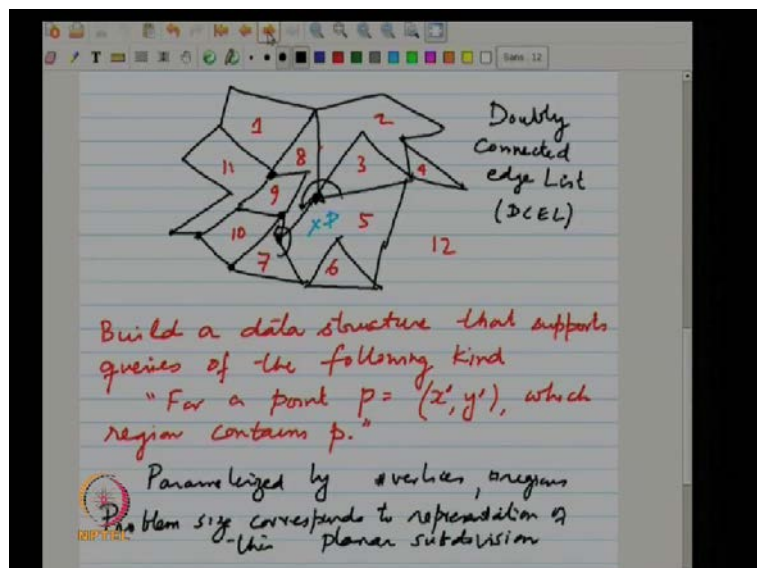 Sans 12
1
2
Doubly
Connected
edge List
(DCEL)
8
3
11
4
9
xP
5
10
12
7
6
Build a data structure that supports
queries of the following kind
"For a point p = (x', y'), which
region contains p."
Parameterized by #vertices, #regions
Problem size corresponds to representation of
this planar subdivision
NPTEL